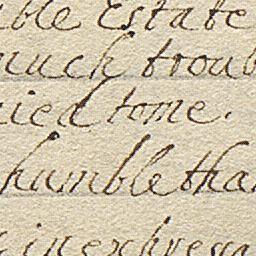 ble Estate
much troub
ied tome.
humble tha
inexpress